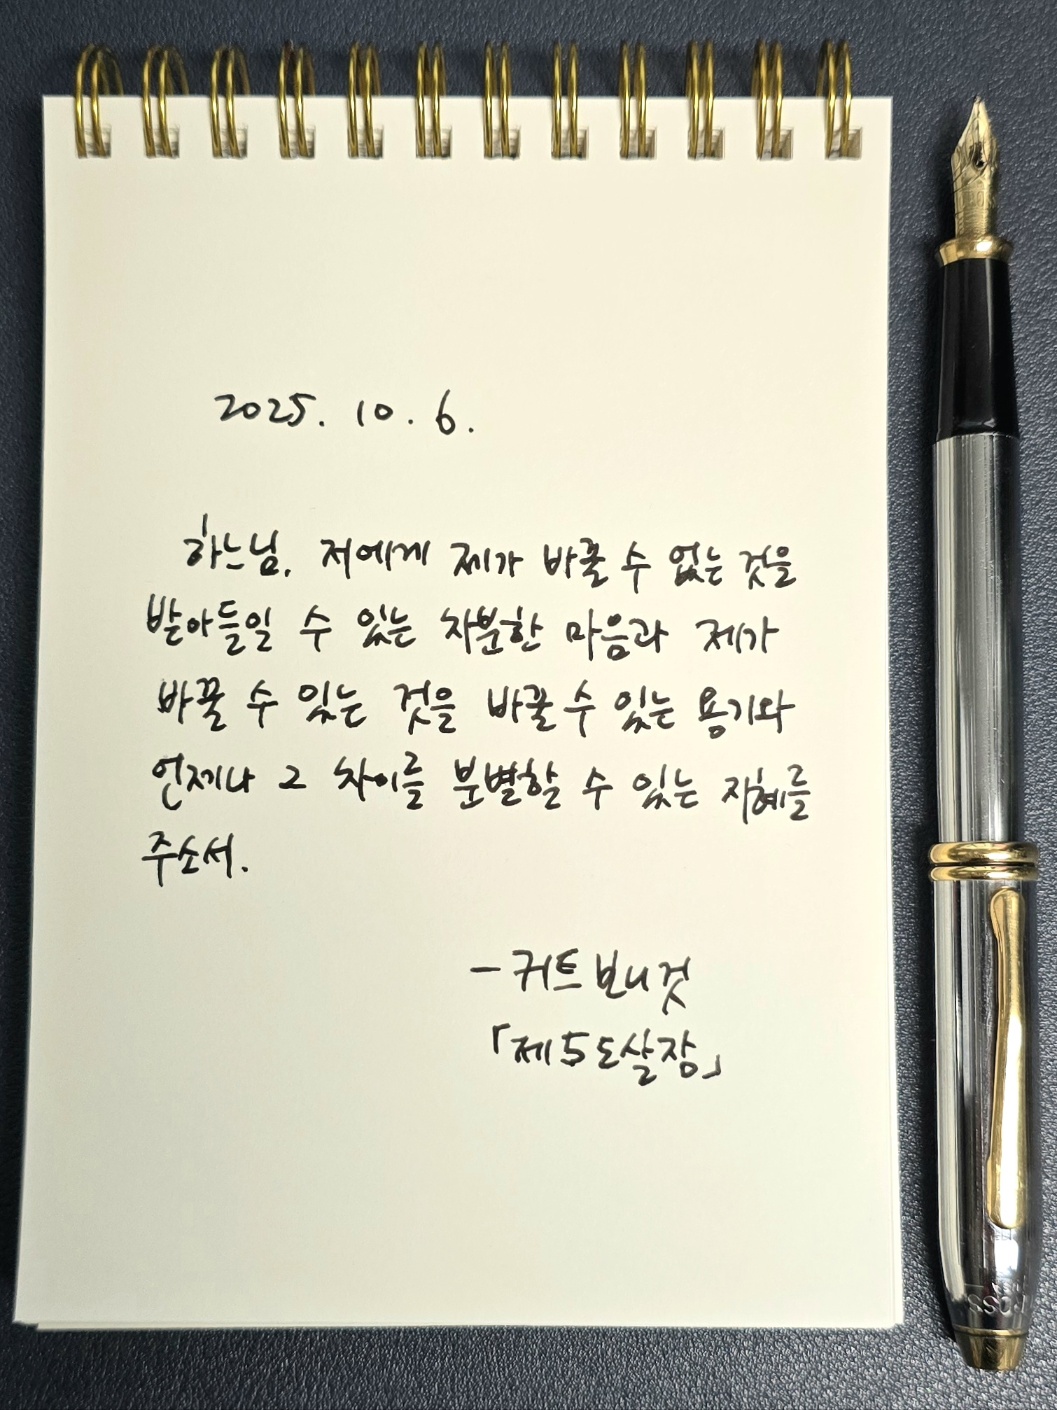 2025. 10. 6.
하느님, 저에게 제가 바꿀 수 없는 것을
받아들일 수 있는 차분한 마음과 제가
바꿀 수 있는 것을 바꿀 수 있는 용기와
언제나 그 차이를 분별할 수 있는 지혜를
주소서.
- 커트 보니것
「제5도살장」
CROSS